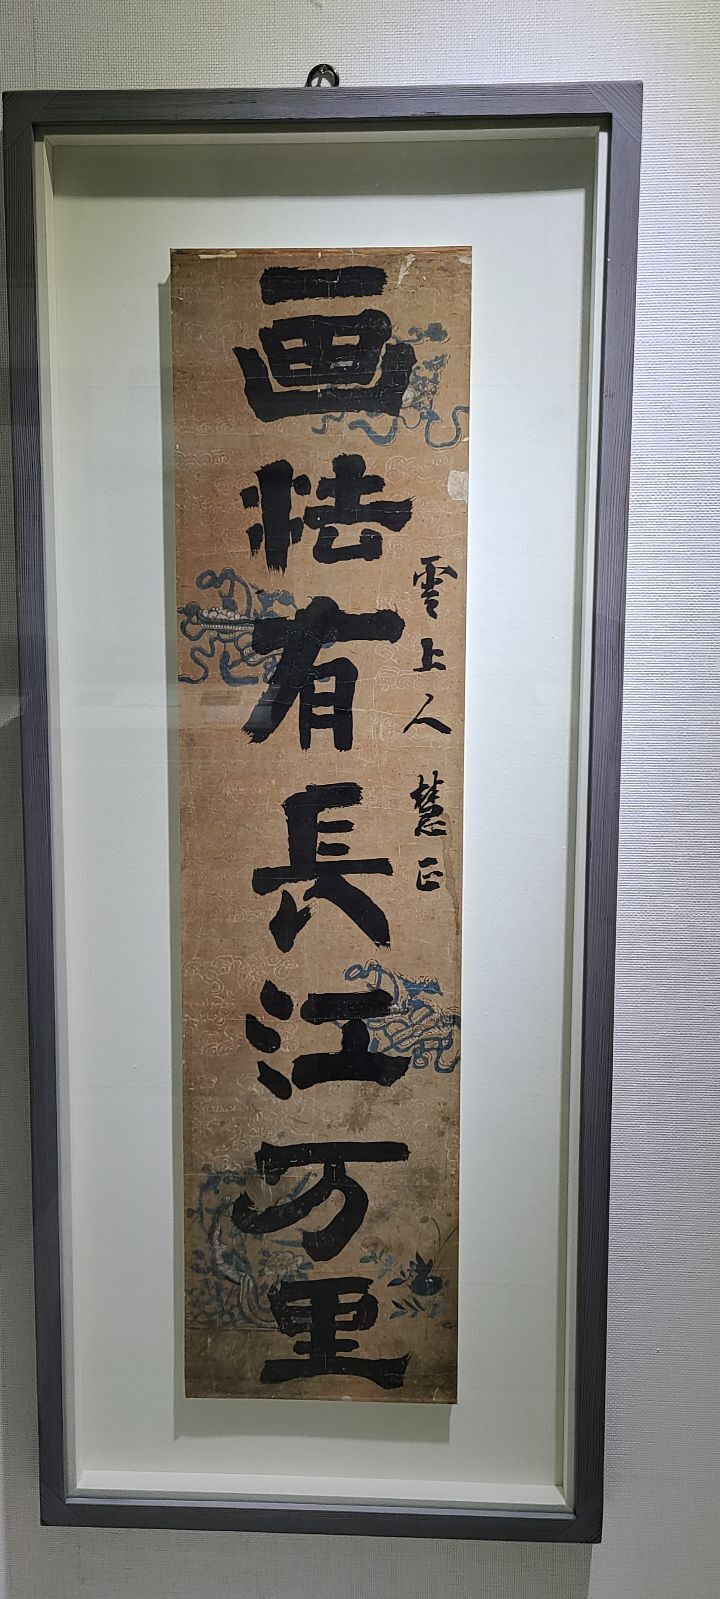 画法有長江万里
雲上人 慧正